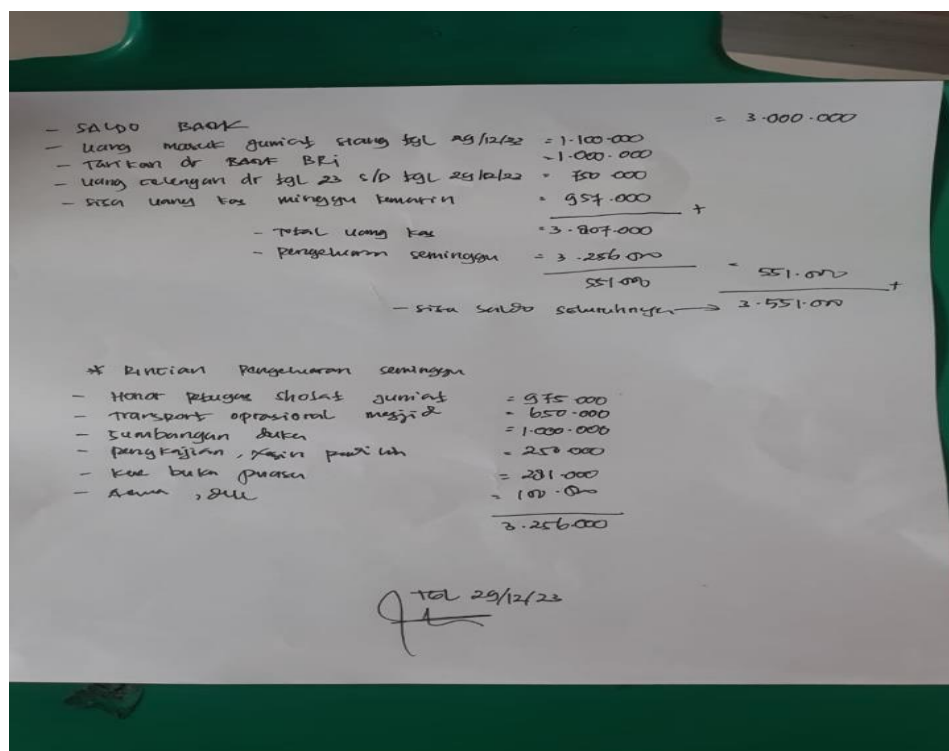 - SALDO BANK = 3.000.000
- Uang masuk jumiat siang tgl 29/12/23 = 1.100.000
- Tarikan dr BANK BRi = 1.000.000
- Uang celengan dr tgl 23 s/d tgl 29/12/23 = 750 000
- sisa uang kas minggu kemarin = 957.000 +
- Total uang kas = 3.807.000
- pengeluaran seminggu = 3.256.000
551.000 = 551.000 +
- sisa saldo seluruhnya → 3.551.000
* Rincian pengeluaran seminggu
- Honor petugas sholat jumiat = 975 000
- Transport oprasional mesjid = 650.000
- Sumbangan duka = 1.000.000
- pengkajian, = 250 000
- kue buka puasa = 281.000
- Aqua, dll = 100.000
3.256.000
TGL 29/12/23